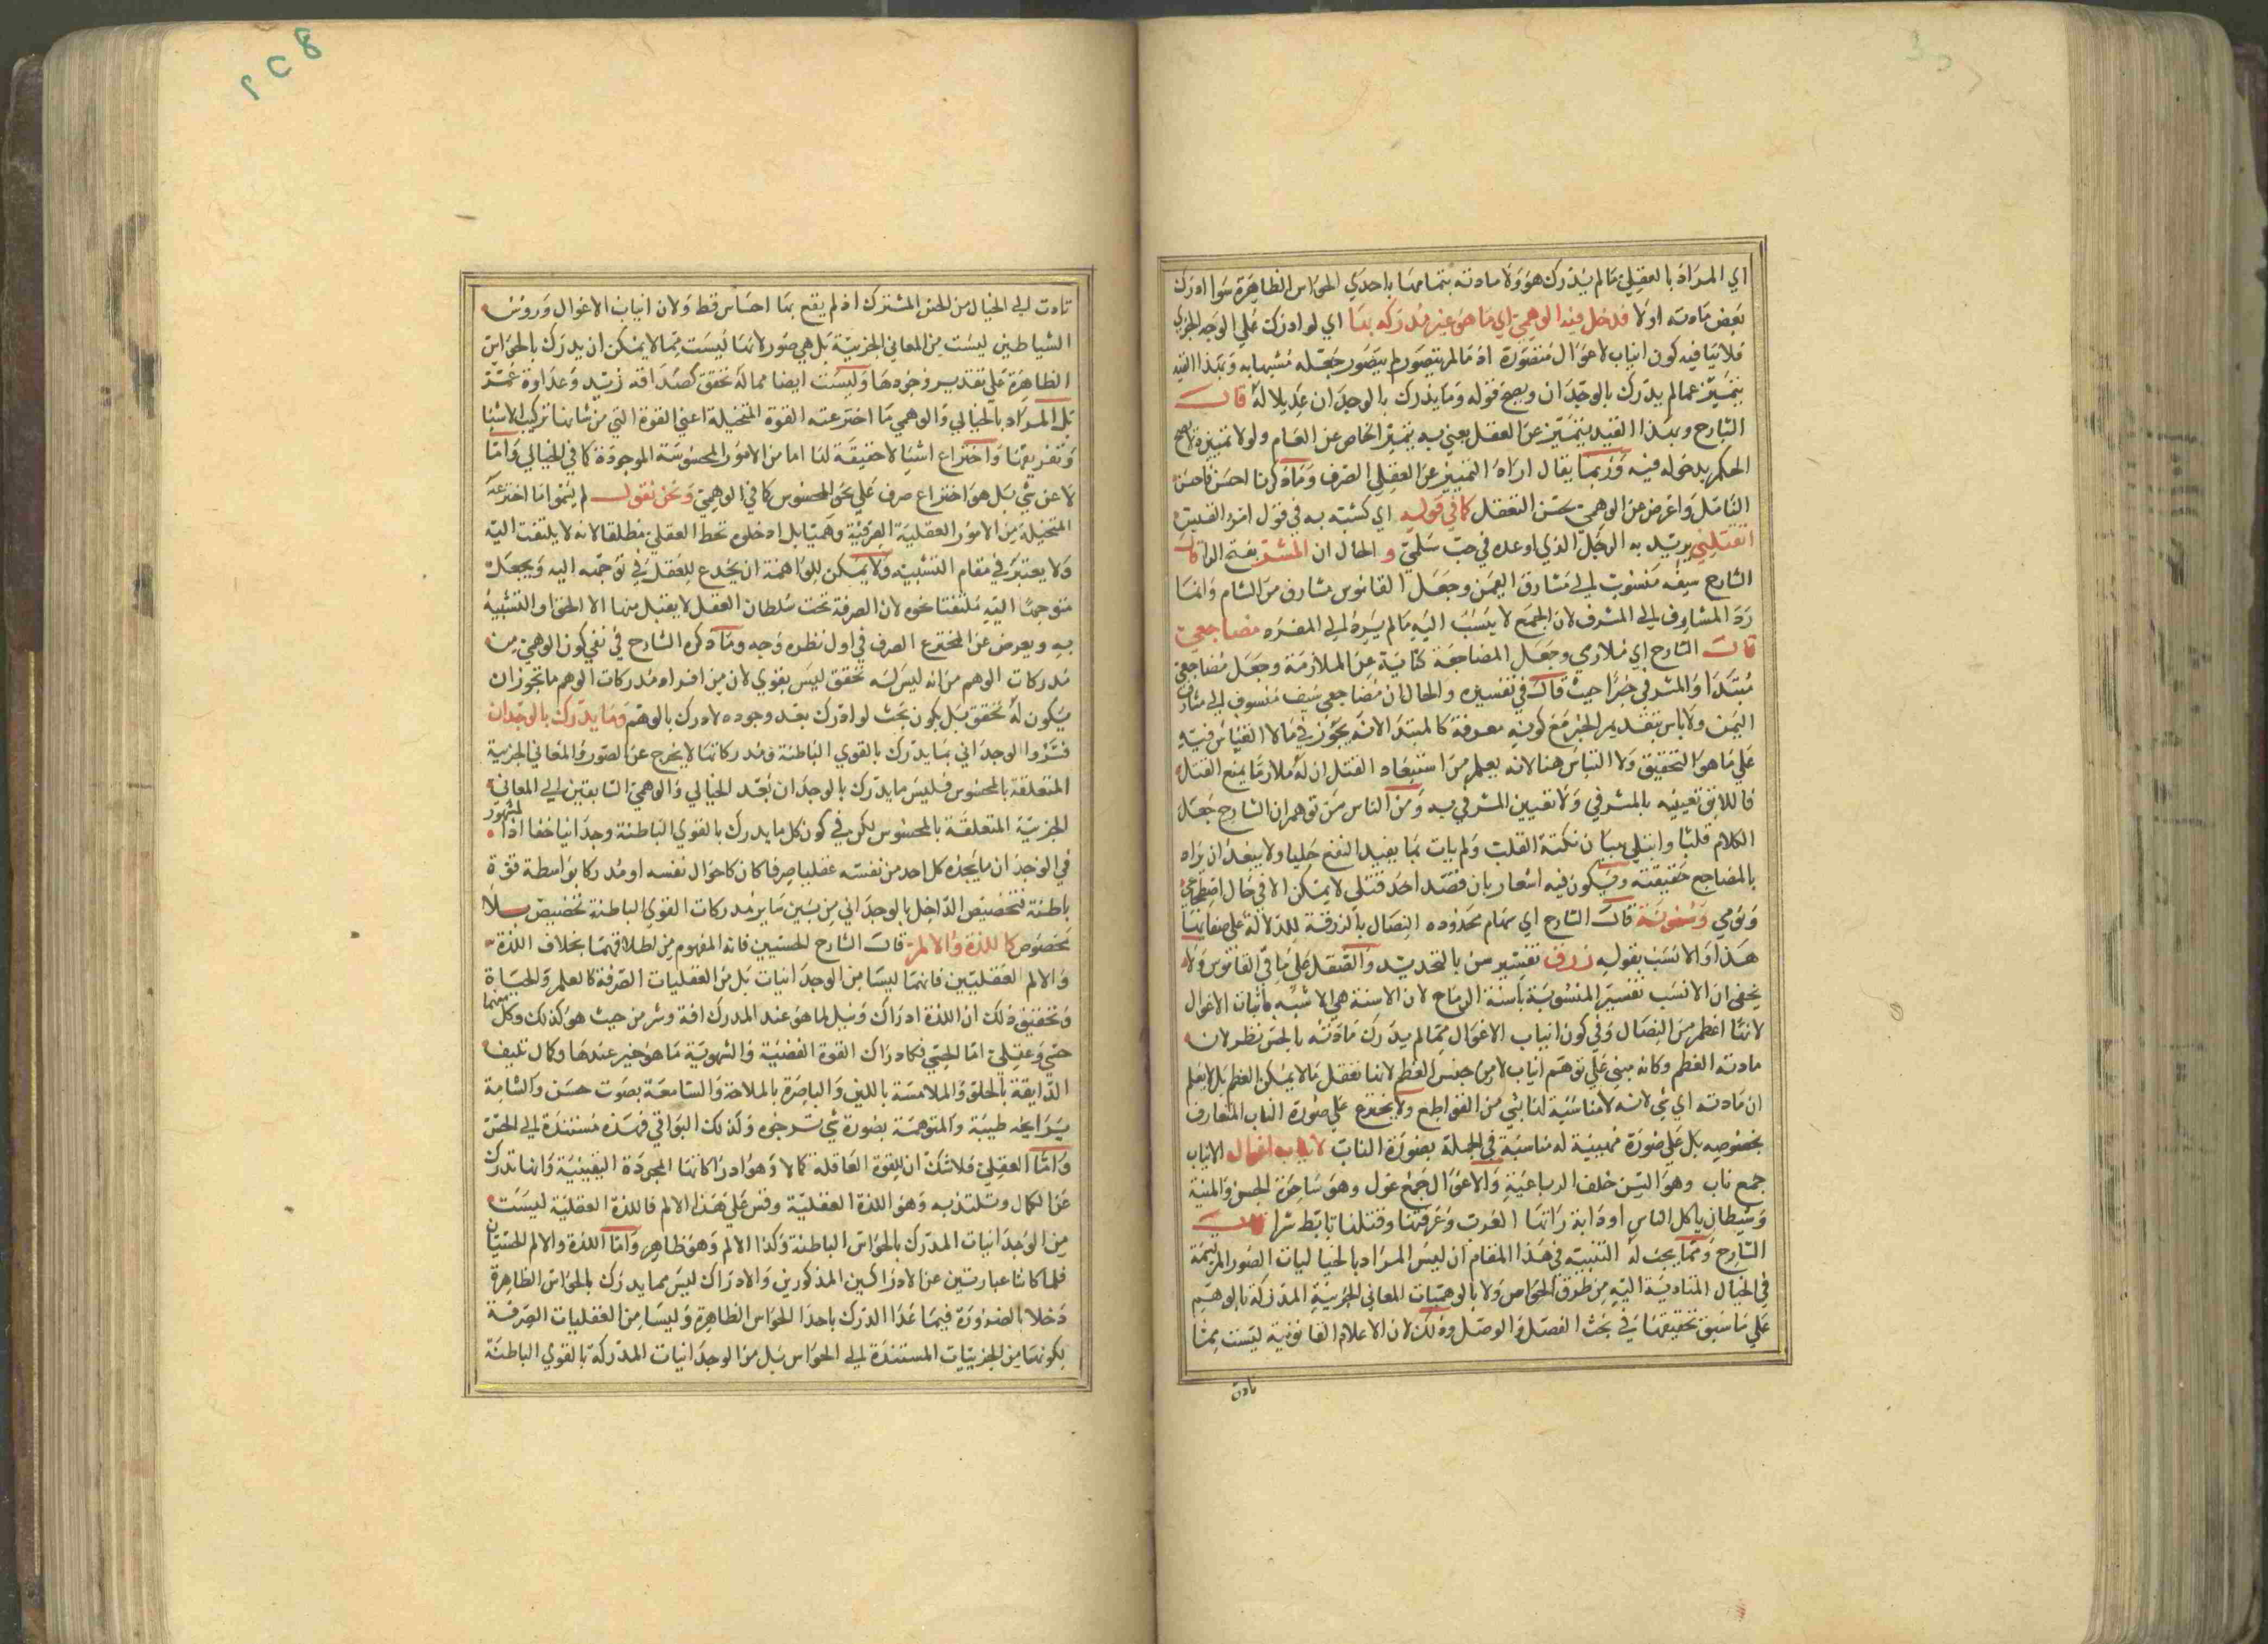 اي المراد بالعقلي ما لم يدرك هو ولا مادته بتمامها باحدي الحواس الظاهرة سوا ادرك
بعض مادته اولا فدخل فيه الوهمي اي ما هو غير مدرك بها اي لو ادركت علي الوجه الجزوي
فلا ينافيه كون انياب الاغوال متصورة اذ ما لم يتصور لم يتصور جعله مشبها به وبهذا القيد
يتميز عما لم يدرك بالوجدان ويصح قوله وما يدرك بالوجدان عديلا له قال
الشارح وبهذا القيد يتميز عن العقل يعني به يتميز الخاص عن العام ولولا تميزه لا صح
الحكم بدخوله فيه وربما يقال اراد التمييز عن العقلي الصرف وما ذكرنا احسن فاحسن
التامل واعرض عن الوهمي بحسن التعقل كما في قوله اي كشبه به في قول امرؤ القيس
ايقتلني يريد به الرجل الذي اوعده في حب سلمي و الحال ان المشرفي بفتح الرا قال
الشارح سيف منسوب الي مشارق اليمن وجعل القاموس مشارف من الشام وانما
رد المشارف الي المشرف لان الجمع لا ينسب اليه ما لم يرد الي المفرد مضاجعي
قال الشارح اي ملازمي وجعل المضاجعة كناية عن الملازمة وجعل مضاجعي
مبتدا والمشرفي خبرا حيث قال في تفسيره والحال ان مضاجعي سيف منسوب الي مشارف
اليمن ولا باس بتقديم الخبر مع كونه معرفة كالمبتدا لانه يجوز في ما لا التباس فيه
علي ما هو التحقيق ولا التباس هنا لانه يعلم من استبعاد القتل ان له ملازما يمنع القتل
فاللايق تعيينه بالمشرفي ولا تعيين المشرفي به ومن الناس من توهم ان الشارح جعل
الكلام قلبا وابتلي ببيان نكتة القلب ولم يات بما يفيد النفع جليا ولا يبعد ان يراد
بالمضاجع حقيقته ويكون فيه اشعار بان قصد احد قتلي لا يمكن الا في حال اضطجاعي
ونومي ومسنونة قال الشارح اي سهام محدودة النصال بالزرقة للدلالة علي صفائها
هذا والانسب بقوله زرق تفسير سن بالتحديد والصقل علي ما في القاموس ولا
يخفي ان الانسب تفسير المنسوبة باسنة الرماح لان الاسنة هي الاشبه بانياب الاغوال
لانها اعظم من النصال وفي كون انياب الاغوال مما لم يدرك مادته بالحس نظر لان
مادته العظم وكانه مبني علي توهم انياب لا من جنس العظم لاننا نعقل ما لا يمكن العظم بل لا يعلم
ان مادته اي شي لانه لا مناسبة لنا بشي من القواطع ولا يخترع علي صورة الناب المتعارف
بخصوصه بل علي صورة مهيبة له مناسبة في الجملة بصورة الناب كانياب اغوال الانياب
جمع ناب وهو السن خلف الرباعية والاغوال جمع غول وهو ساحرة الجن والمنية
وشيطان ياكل الناس او دابة راتها العرب وعرفتها وقتلها تابط شرا قال
الشارح ومما يجب له التنبيه في هذا المقام ان ليس المراد بالخياليات الصور المرتسمة
في الخيال المتادية اليه من طرق الحواس ولا بالوهميات المعاني الجزئية المدركة بالوهم
علي ما سبق تحقيقها في بحث الفصل والوصل وذلك لان الاعلام الياقوتية ليست مما
تادت
تادت الي الخيال من الحس المشترك اذ لم يقع بها احساس قط ولان انياب الاغوال وروس
الشياطين ليست من المعاني الجزيية بل هي صور لانها ليست مما لا يمكن ان يدرك بالحواس
الظاهرة علي تقدير وجودها وليست ايضا مما له تحقق كصداقة زيد وعداوة عمرو
بل المراد بالخيالي والوهمي ما اخترعته القوة المتخيلة اعني القوة التي من شانها تركيب الاشيا
وتفريقها واختراع اشيا لا حقيقة لها اما من الامور المحسوسة الموجودة كما في الخيالي واما
لا عن شي بل هو اختراع صرف علي نحو المحسوس كما في الوهمي ونحن نقول لم يسموا ما اخترعته
المتخيلة من الامور العقلية الصرفية وهميا بل ادخلوه تحت العقلي مطلقا لانه لا يلتفت اليه
ولا يعتبر في مقام التشبيه ولا يمكن للواهمة ان يخدع للعقل في توجهه اليه ويجعله
متوجها اليه ملتفتا نحوه لان الصرفة تحت سلطان العقل لا يقبل منها الا الحق او التشبيه
به ويعرض عن المخترع الصرف في اول نظره وجه وما ذكره الشارح في نفي كون الوهمي من
مدركات الوهم من انه ليس له تحقق ليس بقوي لان من افراد مدركات الوهم ما يجوز ان
يكون له تحقق بل يكون بحيث لو ادرك بعد وجوده لادرك بالوهم وما يدرك بالوجدان
فسروا الوجداني بما يدرك بالقوي الباطنة ومدركاتها لا يخرج عن الصور والمعاني الجزيية
المتعلقة بالمحسوس فليس ما يدرك بالوجدان بعد الخيالي والوهمي السابقين الا المعاني
الجزيية المتعلقة بالمحسوس لكن في كون كل ما يدرك بالقوي الباطنة وجدانيا خفا اذ المشهور
في الوجدان ما يجده كل احد من نفسه عقليا صرفا كان كاحوال نفسه او مدركا بواسطة قوة
باطنة فتخصيص الداخل بالوجداني من بين ساير مدركات القوي الباطنة تخصيص بلا
مخصوص كاللذة والالم قال الشارح الحسيين فانه المفهوم من اطلاقهما بخلاف اللذة
والالم العقليين فانهما ليسا من الوجدانيات بل من العقليات الصرفة كالعلم والحياة
وتحقيق ذلك ان اللذة ادراك ونيل لما هو عند المدرك افة وشر من حيث هو كذلك وكل منهما
حسي وعقلي اما الحسي فكادراك القوة الغضبية والشهوية ما هو خير عندها وكال تكيف
الذايقة بالحلو والملامسة باللين والباصرة بالملاحة والسامعة بصوت حسن والشامة
برايحة طيبة والمتوهمة بصورة شي ترجوه وكذلك البواقي فهذه مستندة الي الحس
واما العقلي فلا شك ان للقوة العاقلة كمالا وهو ادراكاتها المجردة اليقينية وانها تدرك
هذا الكمال وتلتذ به وهو اللذة العقلية وقس علي هذا الالم فاللذة العقلية ليست
من الوجدانيات المدرك بالحواس الباطنة وكذا الالم وهو ظاهر واما اللذة والالم الحسيان
فلما كانتا عبارتين عن الادراكين المذكورين والادراك ليس مما يدرك بالحواس الظاهرة
دخلا بالضرورة فيما عدا المدرك باحد الحواس الظاهرة وليسا من العقليات الصرفة
لكونهما من الجزييات المستندة الي الحواس بل من الوجدانيات المدركة بالقوي الباطنة